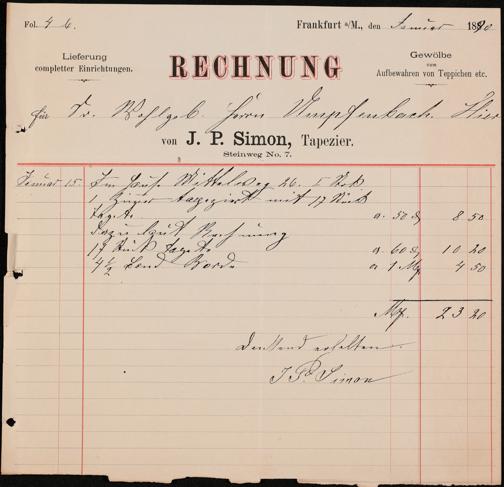 Fol. 46. Frankfurt a/M., den Januar 1890
Lieferung
completter Einrichtungen.
RECHNUNG
Gewölbe
zum
Aufbewahren von Teppichen etc.
für Sr. Wohlgeb. Herrn Umpfenbach Hier
von J. P. Simon, Tapezier.
Steinweg No. 7.
Januar 15. Im Hause Mittelweg 26. I Stok
1 Zimer tapezirt mit 17 Stück
Tapete a. 50 ₰ 8 50
dazu laut Rechnung
17 Stück Tapete a 60 ₰ 10 20
4 1/2 Borde a 1 M 4 50
M. 23 20
Dankend erhalten
J. P. Simon